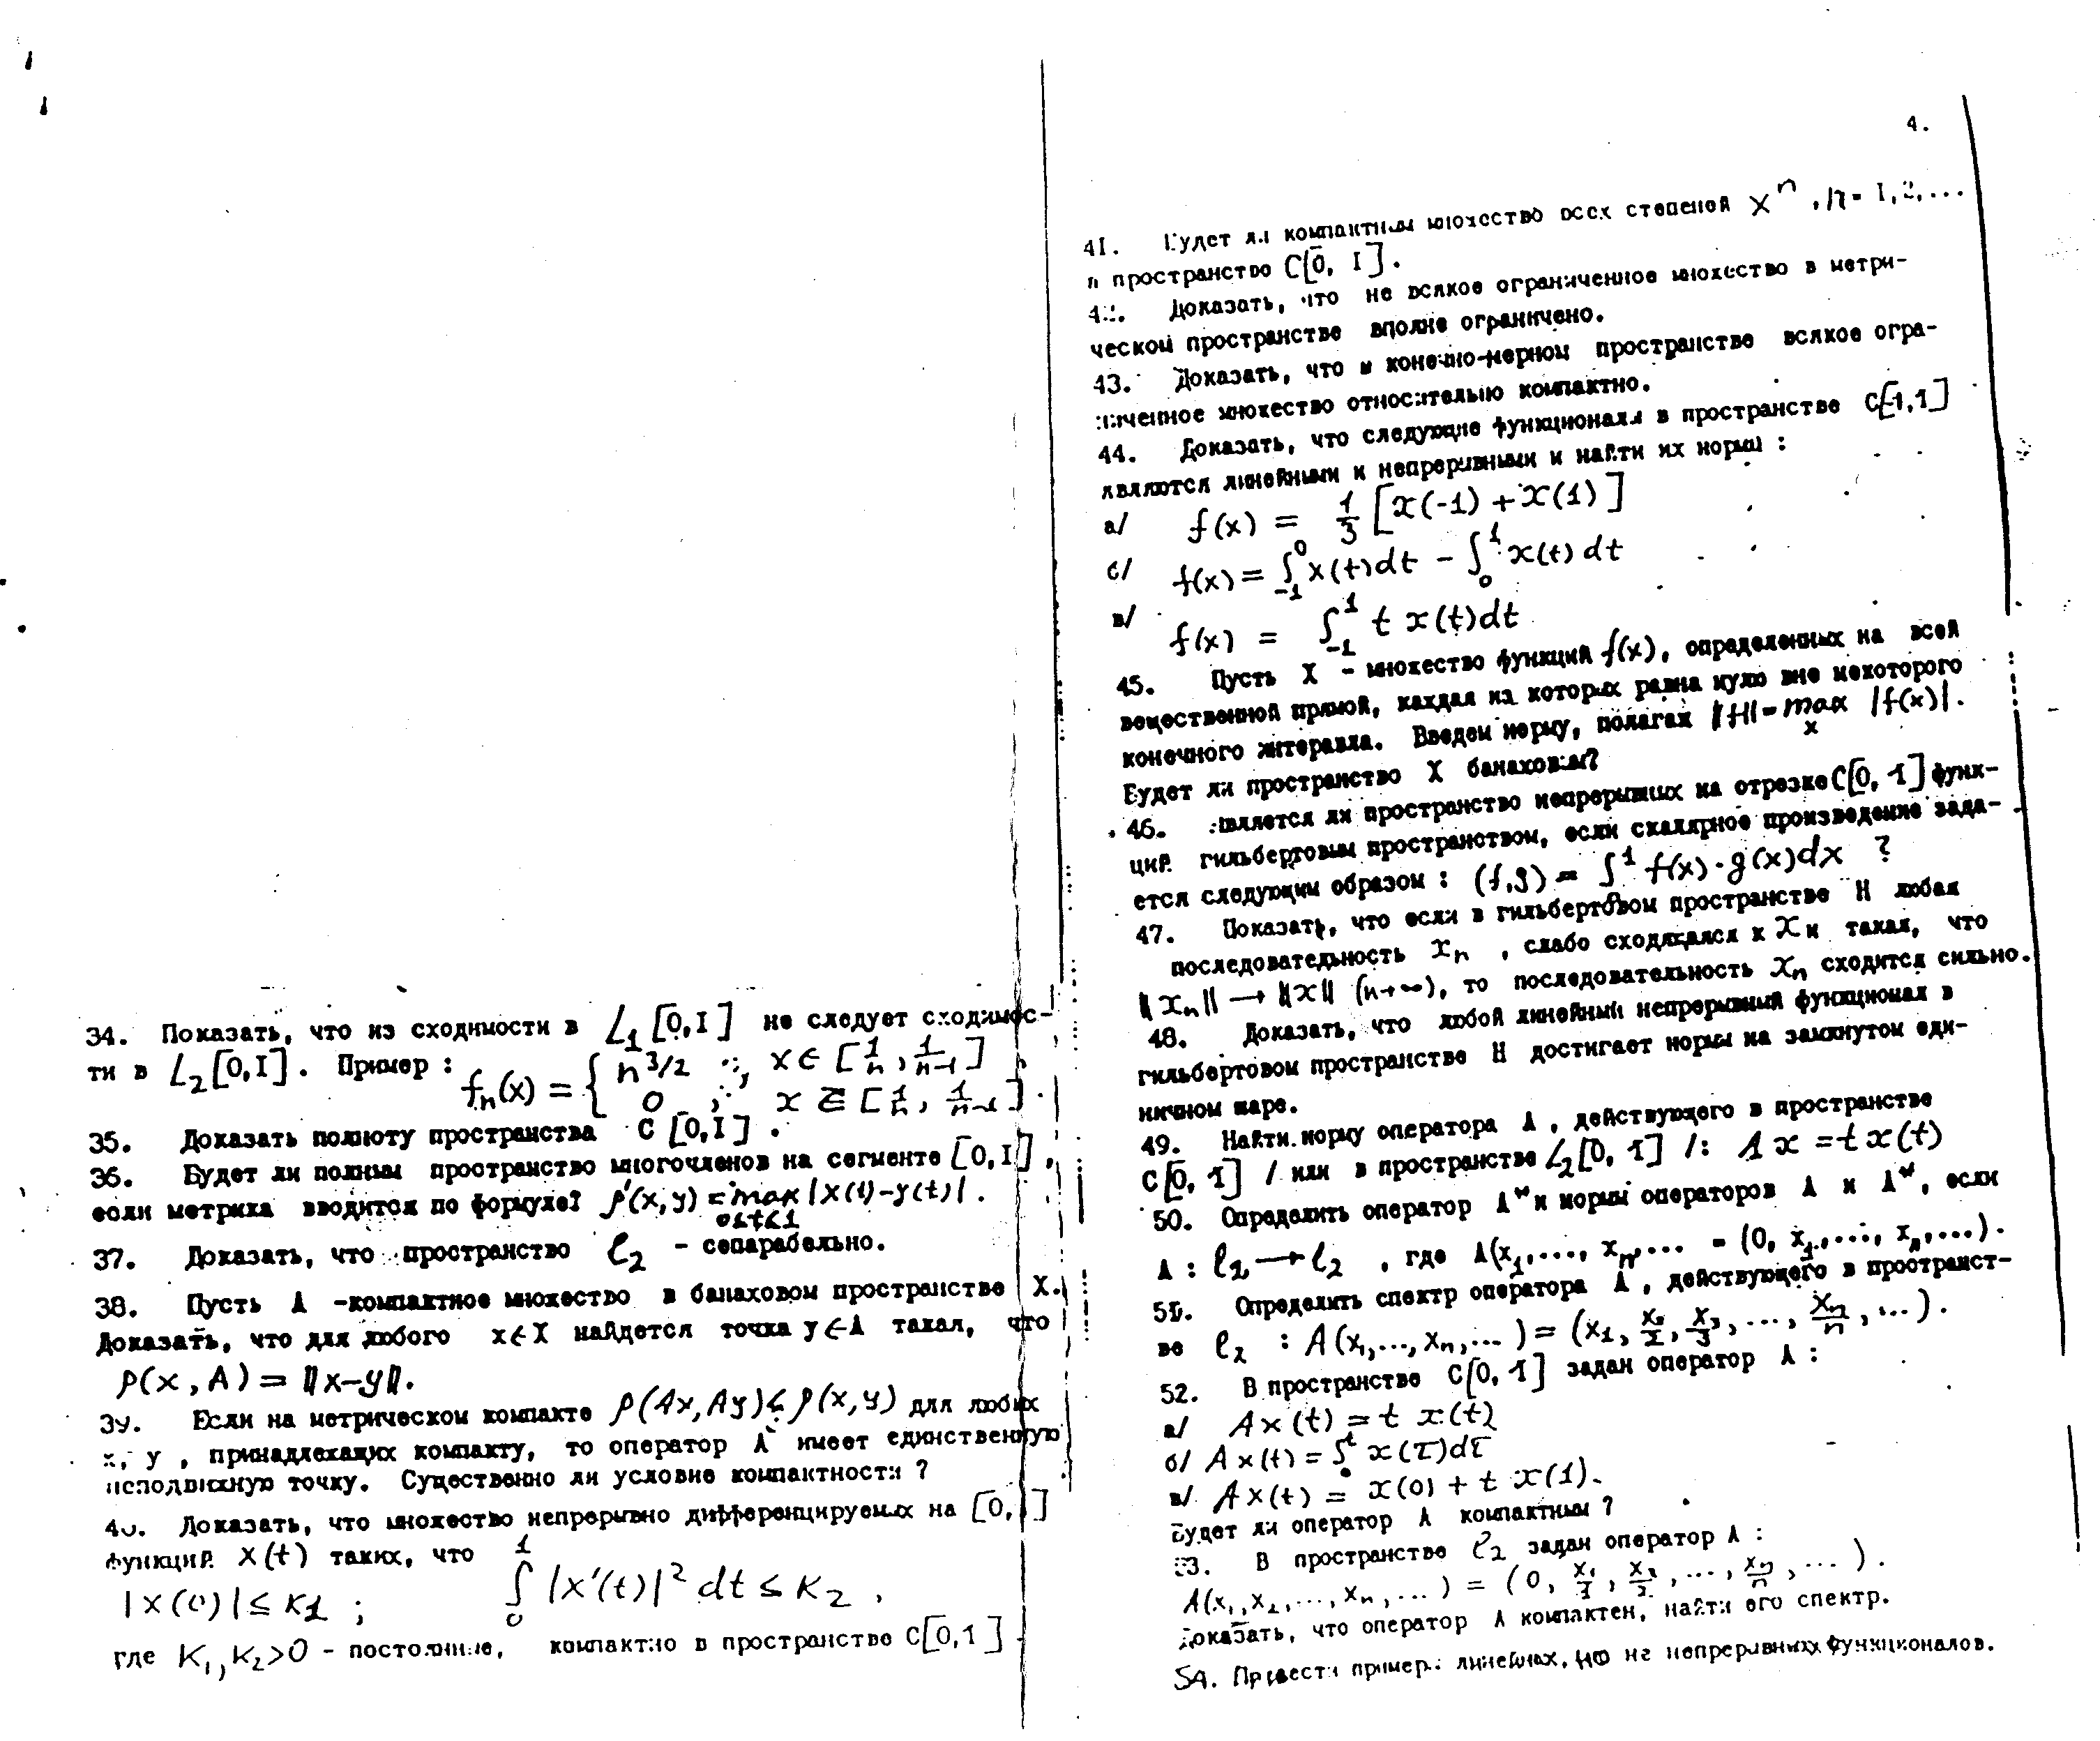 34. Показать, что из сходимости в L₁[0,I] не следует сходимос-
ти в L₂[0,I]. Пример: fₙ(x) = { n^{3/2} ; x ∈ [1/n, 1/(n-1)]
0 ; x ∉ [1/n, 1/(n-1)].
35. Доказать полноту пространства C[0,I].
36. Будет ли полным пространство многочленов на сегменте [0,I],
если метрика вводится по формуле? ρ(x,y) = max |x(t)-y(t)|.
0≤t≤1
37. Доказать, что пространство ℓ₂ - сепарабельно.
38. Пусть А -компактное множество в банаховом пространстве X.
Доказать, что для любого x∈X найдется точка y∈A такая, что
ρ(x,A) = ‖x-y‖.
39. Если на метрическом компакте ρ(Ax,Ay) < ρ(x,y) для любых
x, y , принадлежащих компакту, то оператор А имеет единственную
неподвижную точку. Существенно ли условие компактности ?
40. Доказать, что множество непрерывно дифференцируемых на [0,1]
функций x(t) таких, что
|x(0)| ≤ K₁ ; ∫₀¹ |x'(t)|² dt ≤ K₂ ,
где K₁, K₂>0 - постоянные, компактно в пространстве C[0,1]
4.
41. Будет ли компактным множество всех степеней xⁿ , n = I,2,...
в пространстве C[0, I].
42. Доказать, что не всякое ограниченное множество в метри-
ческом пространстве вполне ограничено.
43. Доказать, что в конечно-мерном пространстве всякое огра-
ниченное множество относительно компактно.
44. Доказать, что следующие функционалы в пространстве C[-1,1]
являются линейными и непрерывными и найти их нормы :
а/ f(x) = 1/3 [x(-1) + x(1)]
б/ f(x) = ∫₋₁⁰ x(t)dt - ∫₀¹ x(t) dt
в/ f(x) = ∫₋₁¹ t x(t)dt
45. Пусть X - множество функций f(x), определенных на всей
вещественной прямой, каждая из которых равна нулю вне некоторого
конечного интервала. Введем норму, полагая ‖f‖ = max |f(x)|.
x
Будет ли пространство X банаховым?
46. Является ли пространство непрерывных на отрезке C[0, 1] функ-
ций гильбертовым пространством, если скалярное произведение зада-
ется следующим образом : (f,g) = ∫₀¹ f(x)·g(x)dx ?
47. Показать, что если в гильбертовом пространстве H любая
последовательность xₙ , слабо сходящаяся к x и такая, что
‖xₙ‖ → ‖x‖ (n→∞), то последовательность xₙ сходится сильно.
48. Доказать, что любой линейный непрерывный функционал в
гильбертовом пространстве H достигает нормы на замкнутом еди-
ничном шаре.
49. Найти норму оператора А , действующего в пространстве
C[0, 1] / или в пространстве L₂[0, 1] /: A x = t x(t)
50. Определить оператор А* и нормы операторов А и А*, если
А : ℓ₂ → ℓ₂ , где А(x₁,..., xₙ,... = (0, x₁,..., xₙ,...).
51. Определить спектр оператора А , действующего в пространст-
ве ℓ₂ : A(x₁,..., xₙ,...) = (x₁, x₂/2, x₃/3, ..., xₙ/n , ...).
52. В пространстве C[0, 1] задан оператор А :
а/ Ax(t) = t x(t)
б/ Ax(t) = ∫₀ᵗ x(τ)dτ
в/ Ax(t) = x(0) + t x(1).
Будет ли оператор А компактным ?
53. В пространстве ℓ₂ задан оператор А :
A(x₁,x₂,...,xₙ,...) = (0, x₁/1, x₂/2, ..., xₙ/n, ...).
Доказать, что оператор А компактен, найти его спектр.
54. Привести примеры линейных, но не непрерывных функционалов.